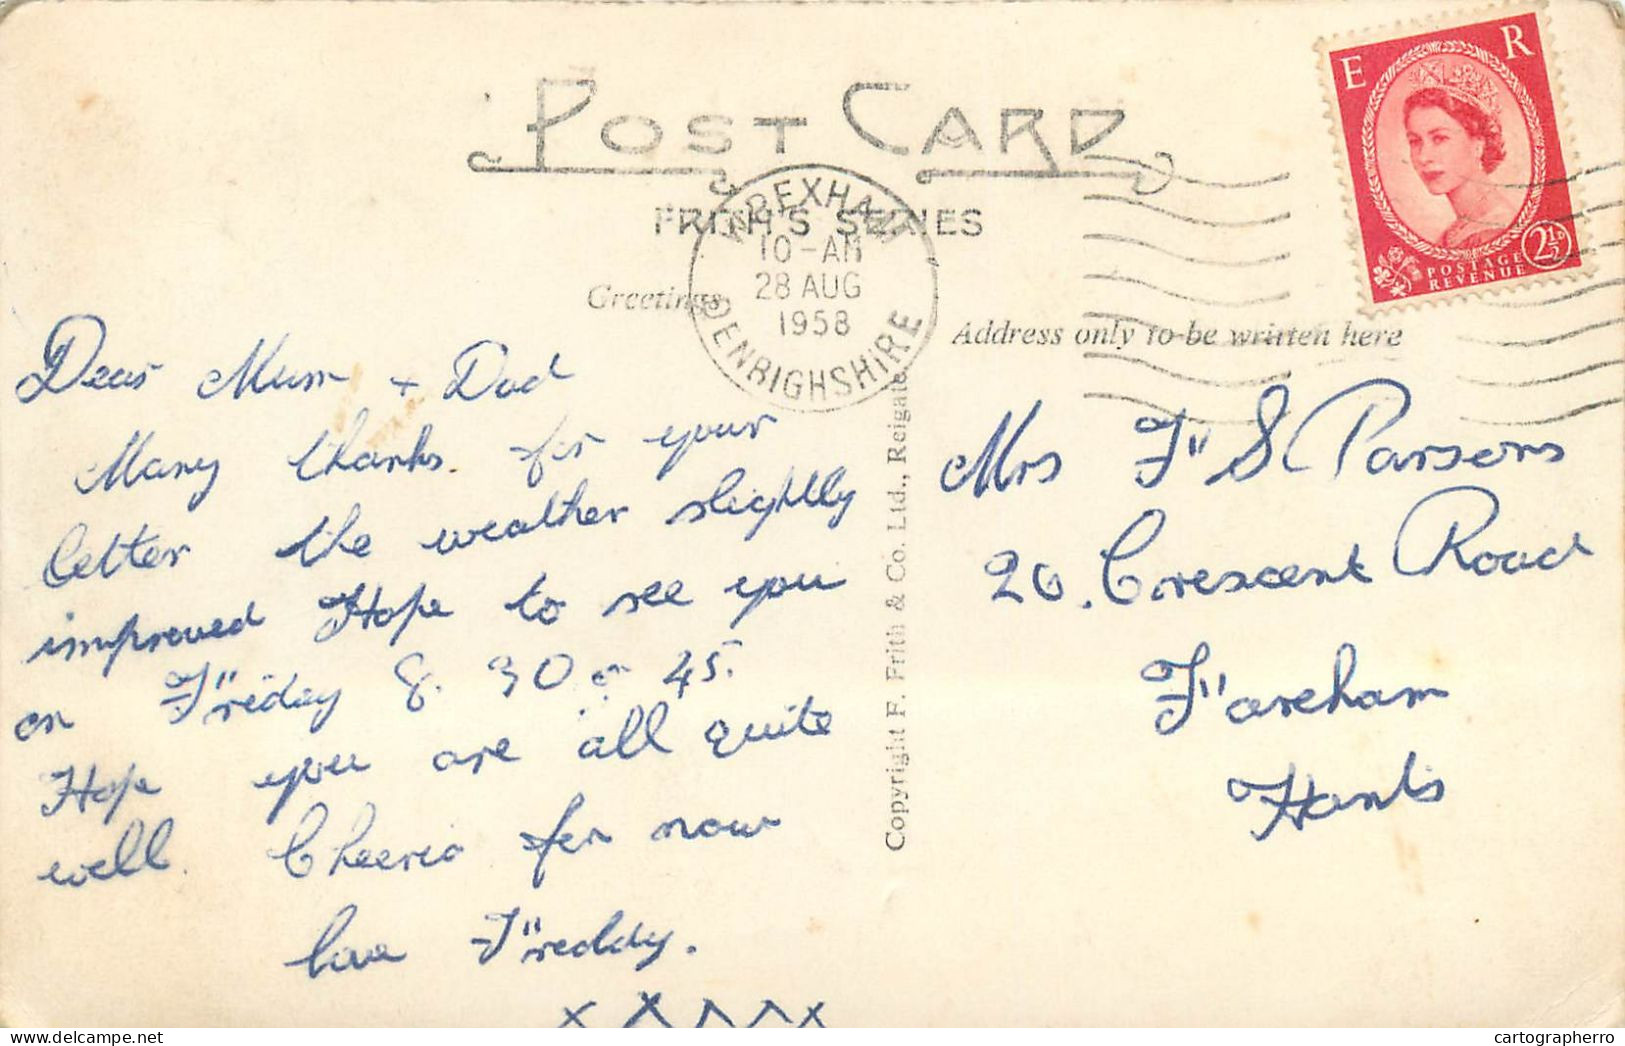 POST CARD
FRITH'S SERIES
WREXHAM
10-AM
28 AUG
1958
DENBIGHSHIRE
E R
POSTAGE
REVENUE
2½D
Greetings
Address only to be written here
Dear Mum + Dad
Many thanks for your
letter the weather slightly
improved Hope to see you
on Friday 8.30 or 45.
Hope you are all quite
well. Cheerio for now
love Freddy.
x x x x x
Copyright F. Frith & Co. Ltd., Reigate
Mrs F S Parsons
20. Crescent Road
Fareham
Hants
cartographerro